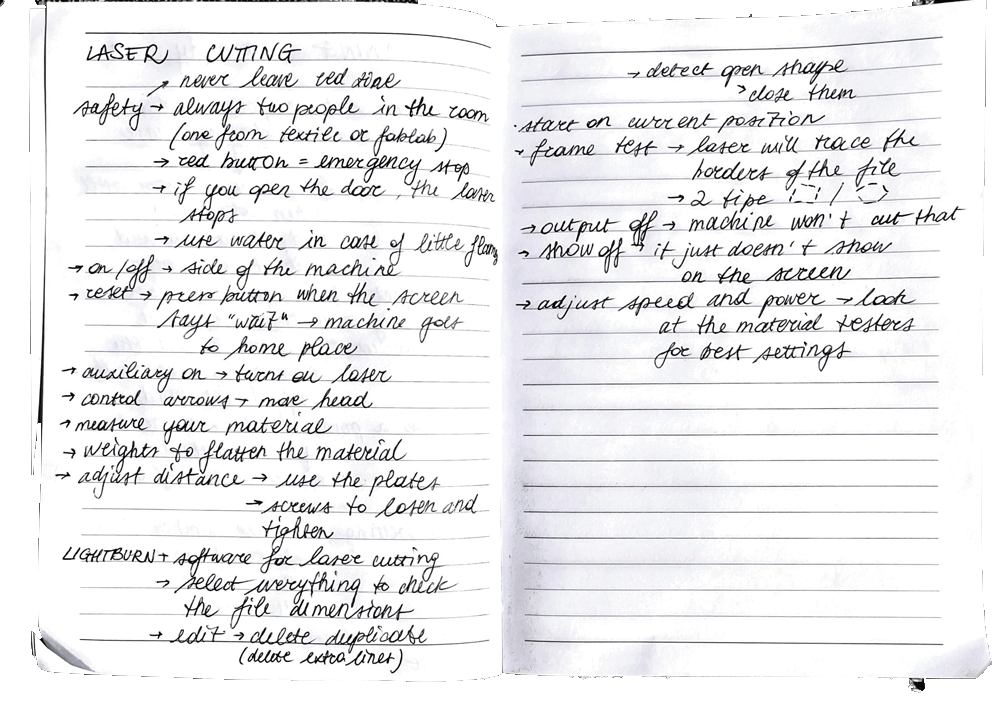 LASER CUTTING
→ never leave red zone
safety → always two people in the room
(one from textile or fablab)
→ red button = emergency stop
→ if you open the door, the laser
stops
→ use water in case of little flams
→ on/off → side of the machine
→ reset → press button when the screen
says "wait" → machine goes
to home place
→ auxiliary on → turns on laser
→ control arrows → move head
→ measure your material
→ weights to flatten the material
→ adjust distance → use the plates
→ screws to losen and
tighten
LIGHTBURN → software for laser cutting
→ select everything to check
the file dimensions
→ edit → delete duplicate
(delete extra lines)
→ detect open shape
> close them
· start on current position
→ frame test → laser will trace the
borders of the file
→ 2 tipe /
→ output off → machine won't cut that
→ show off → it just doesn't show
on the screen
→ adjust speed and power → look
at the material testers
for best settings